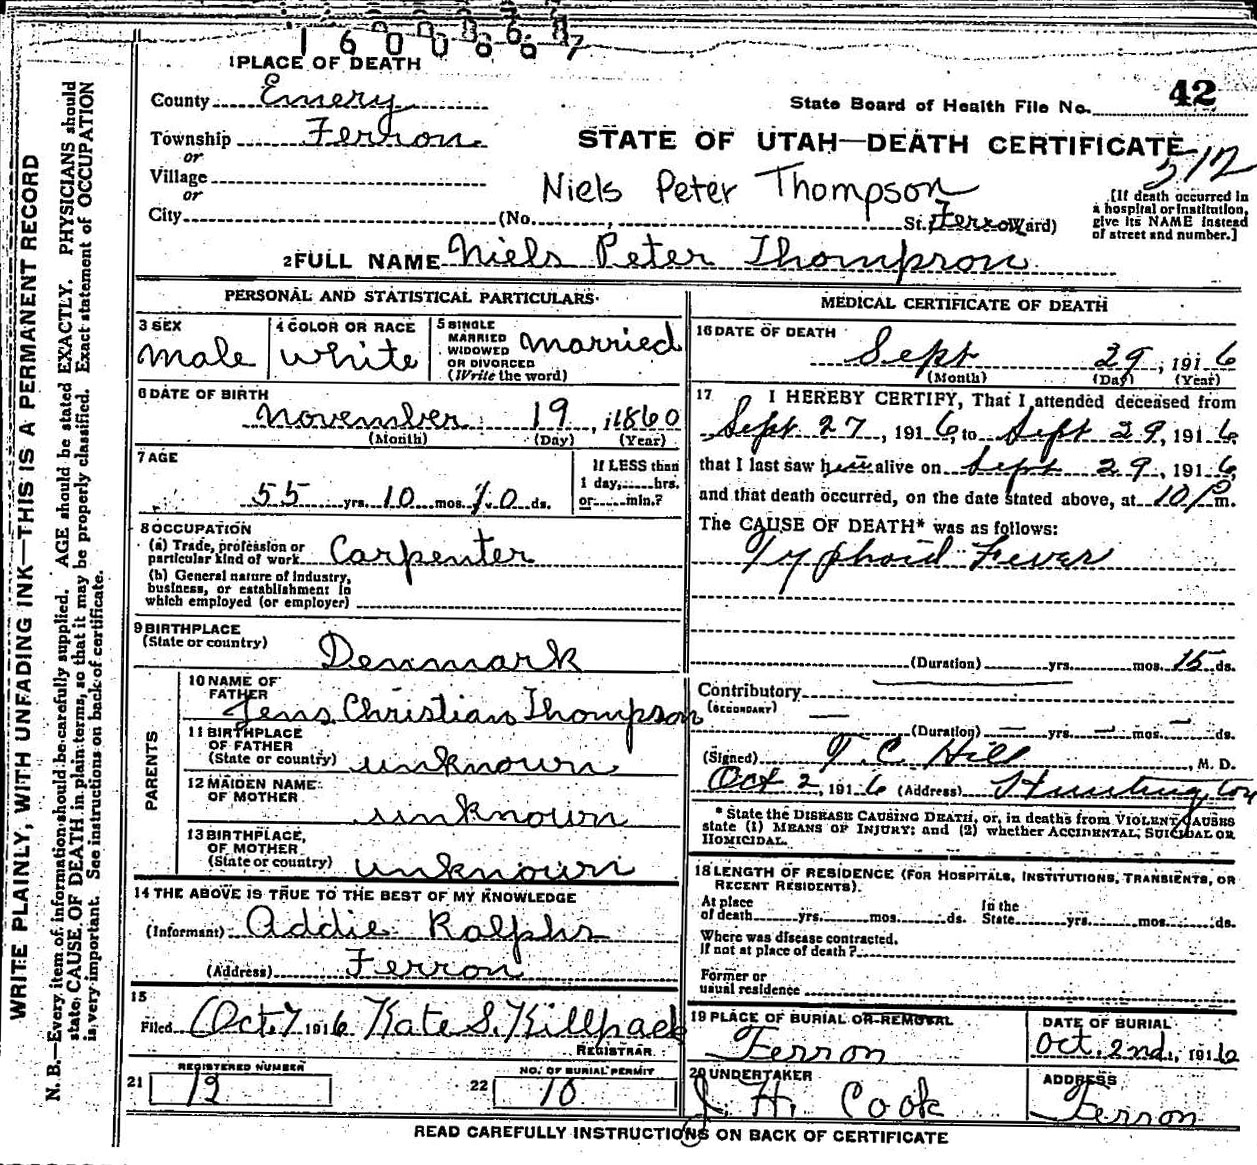 1600866
7
1 PLACE OF DEATH
County Emery
State Board of Health File No. 42
Township Ferron
or
STATE OF UTAH—DEATH CERTIFICATE
512
Village
or
Niels Peter Thompson
City (No. St. Ferron Ward)
[If death occurred in
a hospital or institution,
give its NAME instead
of street and number.]
2 FULL NAME Niels Peter Thompson
PERSONAL AND STATISTICAL PARTICULARS
3 SEX
male
4 COLOR OR RACE
white
5 SINGLE
MARRIED
WIDOWED
OR DIVORCED
(Write the word)
married
6 DATE OF BIRTH
november 19, 1860
(Month) (Day) (Year)
7 AGE
55 yrs. 10 mos. 10 ds.
If LESS than
1 day, hrs.
or min.?
8 OCCUPATION
(a) Trade, profession or
particular kind of work Carpenter
(b) General nature of industry,
business, or establishment in
which employed (or employer)
9 BIRTHPLACE
(State or country)
Denmark
PARENTS
10 NAME OF
FATHER
Jens Christian Thompson
11 BIRTHPLACE
OF FATHER
(State or country) unknown
12 MAIDEN NAME
OF MOTHER
unknown
13 BIRTHPLACE
OF MOTHER
(State or country) unknown
14 THE ABOVE IS TRUE TO THE BEST OF MY KNOWLEDGE
(Informant) Addie Ralphs
(Address) Ferron
15
Filed Oct. 7 1916 Kate S. Killpack
REGISTRAR
21 REGISTERED NUMBER
12
22 NO. OF BURIAL PERMIT
10
MEDICAL CERTIFICATE OF DEATH
16 DATE OF DEATH
Sept 29, 1916
(Month) (Day) (Year)
17 I HEREBY CERTIFY, That I attended deceased from
Sept 27, 1916, to Sept 29, 1916,
that I last saw him alive on Sept 29, 1916,
and that death occurred, on the date stated above, at 10 P m.
The CAUSE OF DEATH* was as follows:
Typhoid Fever
(Duration) yrs. mos. 15 ds.
Contributory
(SECONDARY)
(Duration) — yrs. — mos. — ds.
(Signed) T. C. Hill, M. D.
Oct 2, 1916 (Address) Huntington
* State the DISEASE CAUSING DEATH, or, in deaths from VIOLENT CAUSES
state (1) MEANS OF INJURY; and (2) whether ACCIDENTAL, SUICIDAL OR
HOMICIDAL.
18 LENGTH OF RESIDENCE (FOR HOSPITALS, INSTITUTIONS, TRANSIENTS, OR
RECENT RESIDENTS).
At place
of death yrs. mos. ds.
In the
State yrs. mos. ds.
Where was disease contracted,
If not at place of death?
Former or
usual residence
19 PLACE OF BURIAL OR REMOVAL
Ferron
DATE OF BURIAL
Oct. 2nd, 1916
20 UNDERTAKER
J. H. Cook
ADDRESS
Ferron
READ CAREFULLY INSTRUCTIONS ON BACK OF CERTIFICATE
WRITE PLAINLY, WITH UNFADING INK—THIS IS A PERMANENT RECORD
N. B.—Every item of information should be carefully supplied. AGE should be stated EXACTLY. PHYSICIANS should
state CAUSE OF DEATH in plain terms, so that it may be properly classified. Exact statement of OCCUPATION
is very important. See instructions on back of certificate.